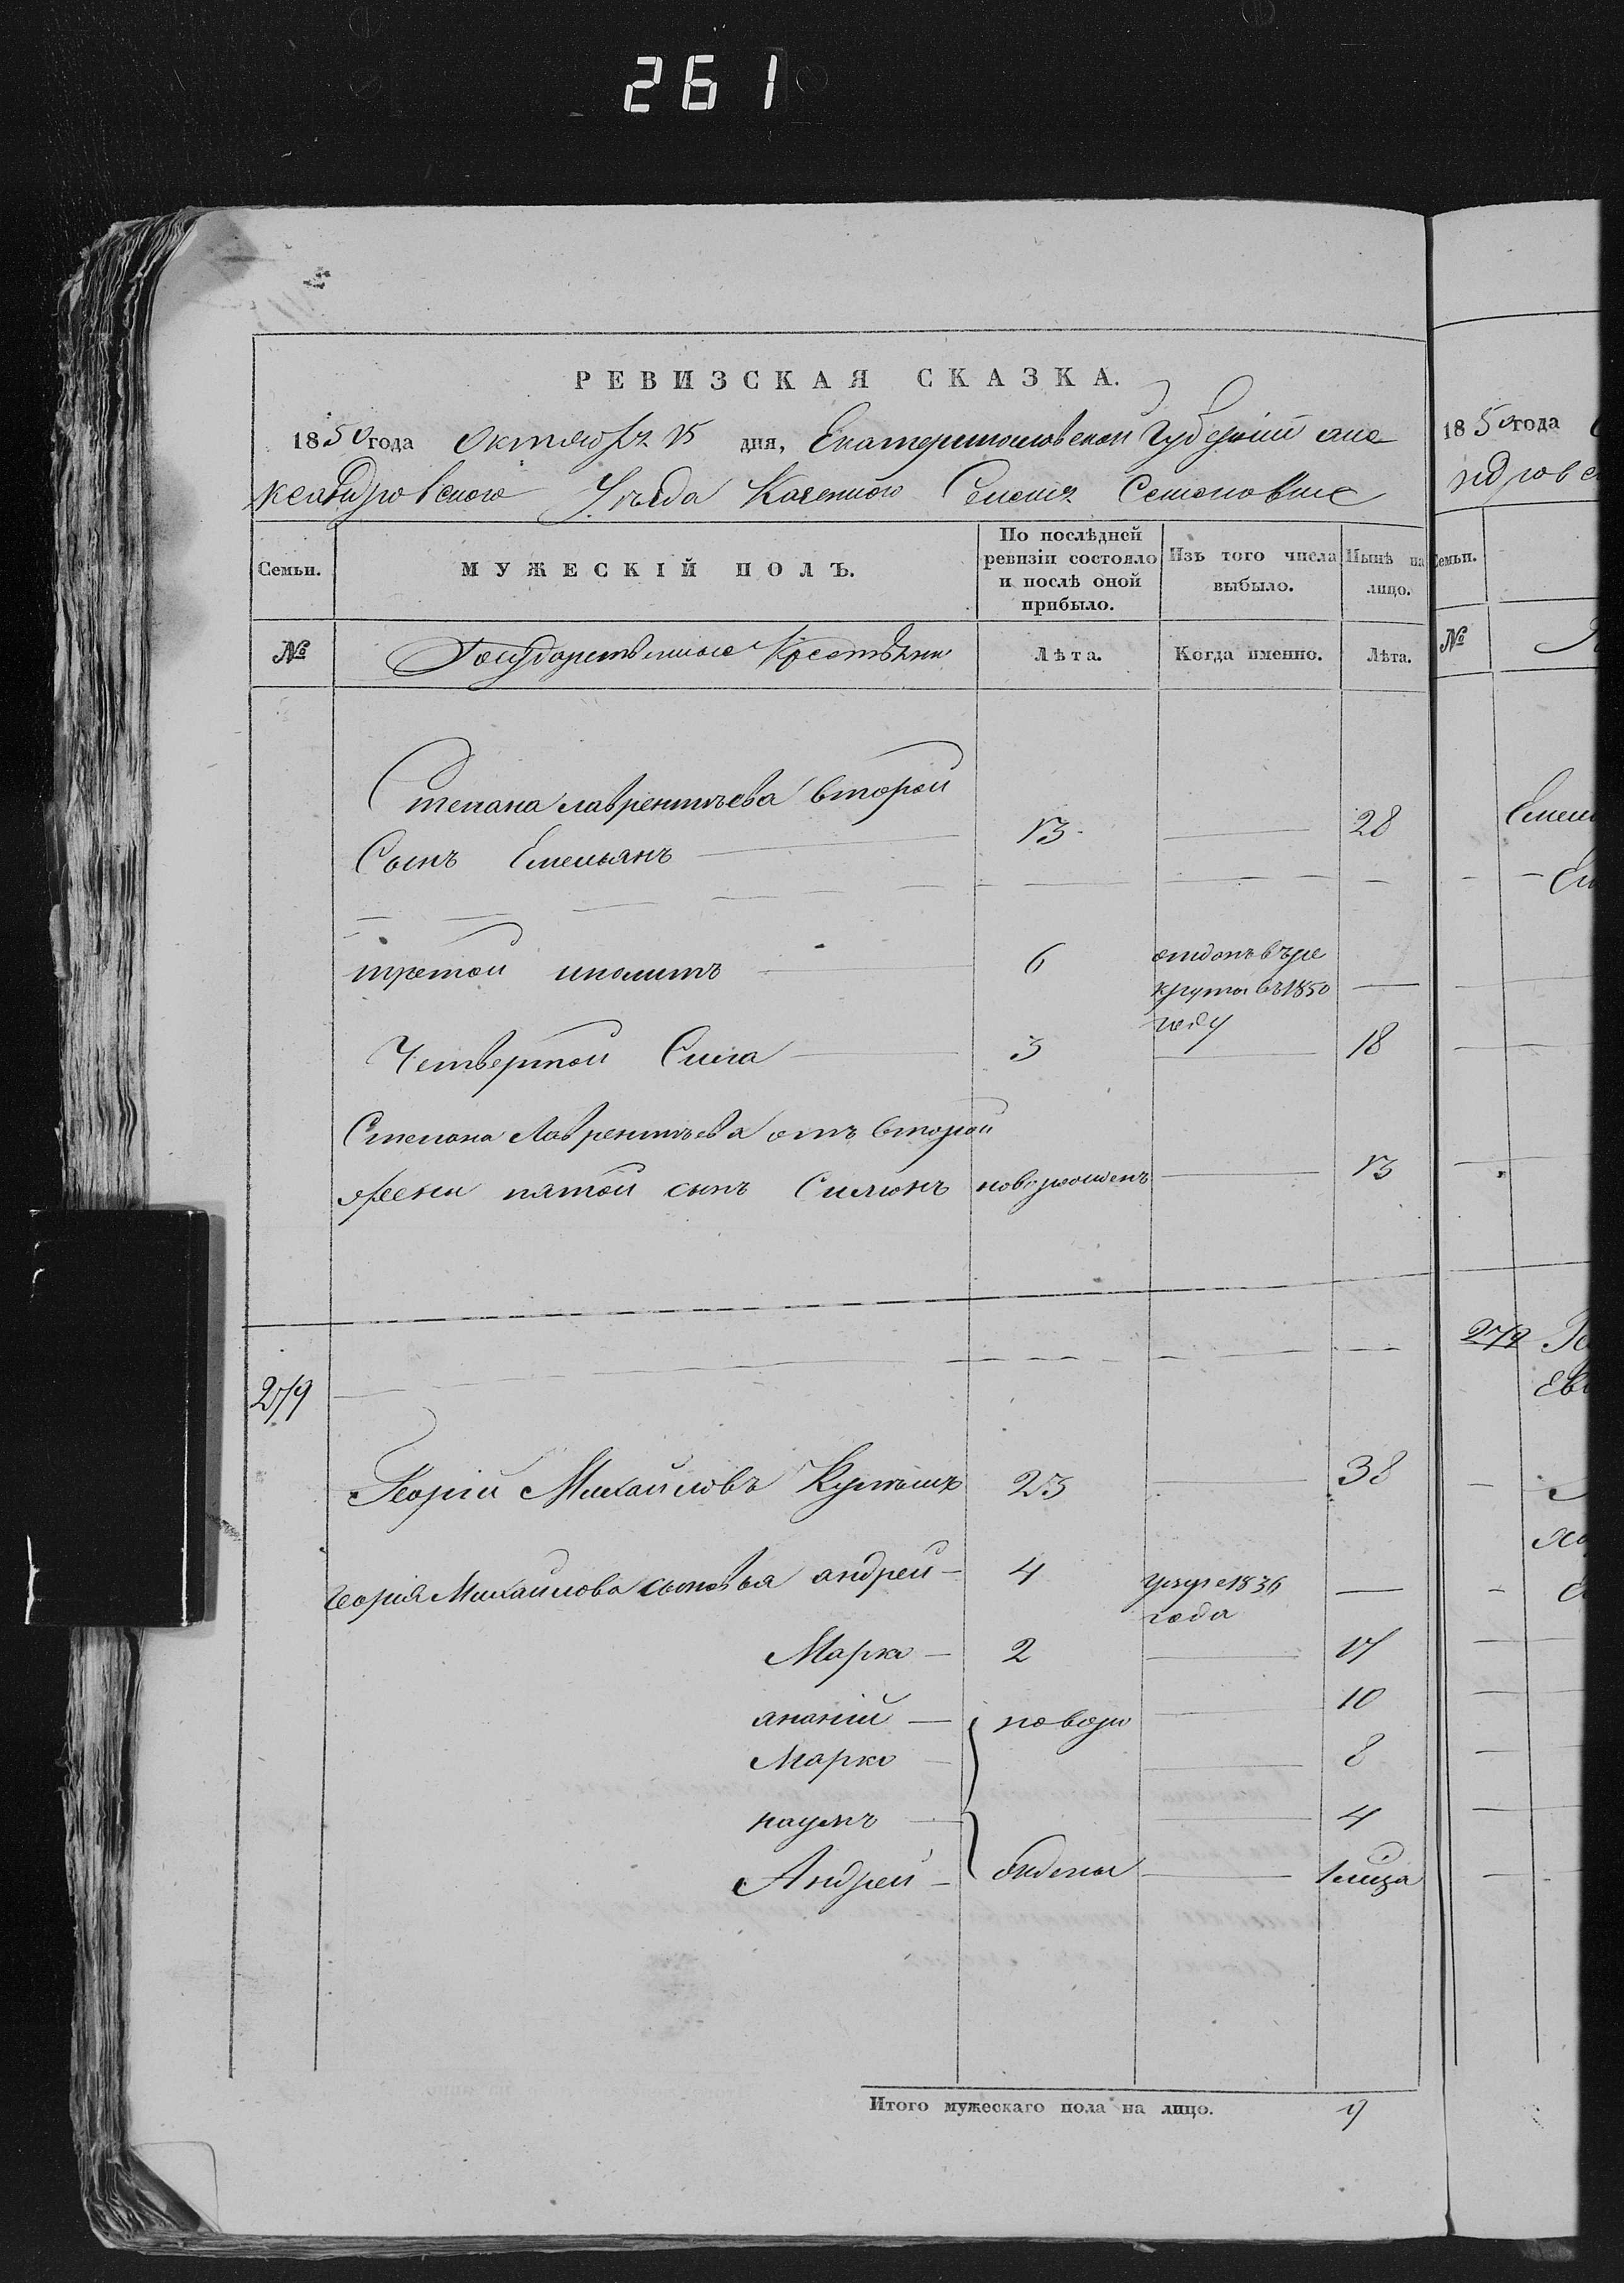 261
РЕВИЗСКАЯ СКАЗКА.
1850 года Октября 15 дня, Екатеринославской Губерніи Але
ксандровского Уѣзда Казенного Селенія Семеновки
Семьи.
МУЖЕСКІЙ ПОЛЪ.
По послѣдней ревизіи состояло и послѣ оной прибыло.
Изъ того числа выбыло.
Нынѣ на лицо.
№
Государственные Крестьяне
Лѣта.
Когда именно.
Лѣта.
Степана Лаврентьева второй
Сынъ Емельянъ 13 28
третой иполитъ 6 отданъ въ ре
круты въ 1850
году
Четвертой Сига 3 18
Степана Лаврентьева отъ второй
жены пятой сынъ Симонъ новорожденъ 13
279
Георгій Михайловъ 23 38
Георгія Михайлова сыновья андрей 4 умре 1836
года
Марко 2 17
ананій новоро 10
Марко 8
наумъ 4
Андрей жденны 1 мѣсяца
Итого мужескаго пола на лицо. 9
1850 года
ндровс
Семьи.
№
Емель
279